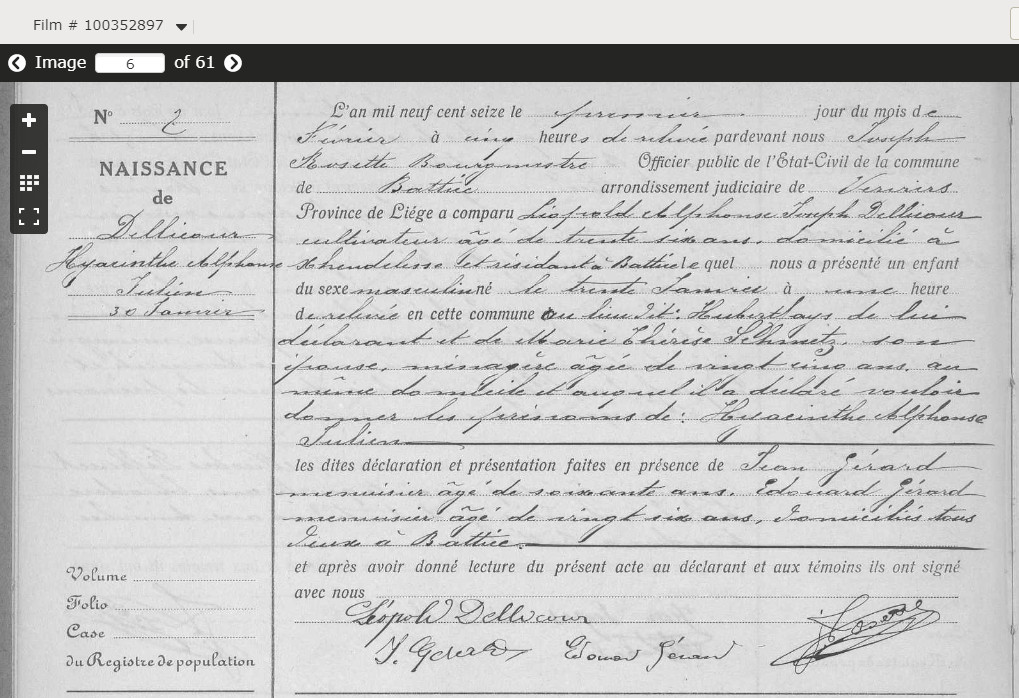 Film # 100352897
Image 6 of 61
N° 2
NAISSANCE
de
Dellicour
Hyacinthe Alphonse
Julien
30 Janvier
L'an mil neuf cent seize le premier jour du mois de
Février à cinq heures de relevée pardevant nous Joseph
Rosette Bourgmestre Officier public de l'État-Civil de la commune
de Battice arrondissement judiciaire de Verviers
Province de Liége a comparu Léopold Alphonse Joseph Dellicour
cultivateur âgé de trente six ans, domicilié à
Xhendelesse et résidant à Battice lequel nous a présenté un enfant
du sexe masculin né le trente Janvier à une heure
de relevée en cette commune au lieu dit: Hubert fays, de lui
déclarant et de Marie Thérèse Schmetz, son
épouse, ménagère âgée de vingt cinq ans, au
même domicile et auquel il a déclaré vouloir
donner les prénoms de: Hyacinthe Alphonse
Julien
les dites déclaration et présentation faites en présence de Jean Gérard
menuisier âgé de soixante ans, Edouard Gérard
menuisier âgé de vingt six ans, domiciliés tous
deux à Battice.
et après avoir donné lecture du présent acte au déclarant et aux témoins ils ont signé
avec nous
Léopold Dellicour
J. Gérard Edouard Gérard
Volume
Folio
Case
du Registre de population